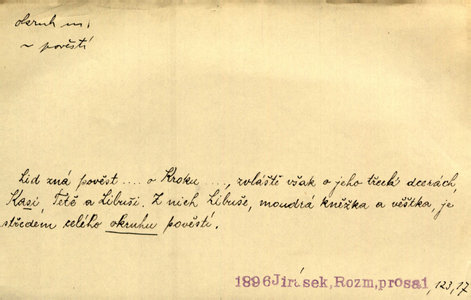 okruh m;
~ pověstí
Lid zná pověst .... o Kroku ...., zvláště však o jeho třech dcerách,
Kasi, Tetě a Libuši. Z nich Libuše, moudrá kněžka a věštka, je
středem celého okruhu pověstí.
1896 Jirásek, Rozm, prosa 1, 123, 17